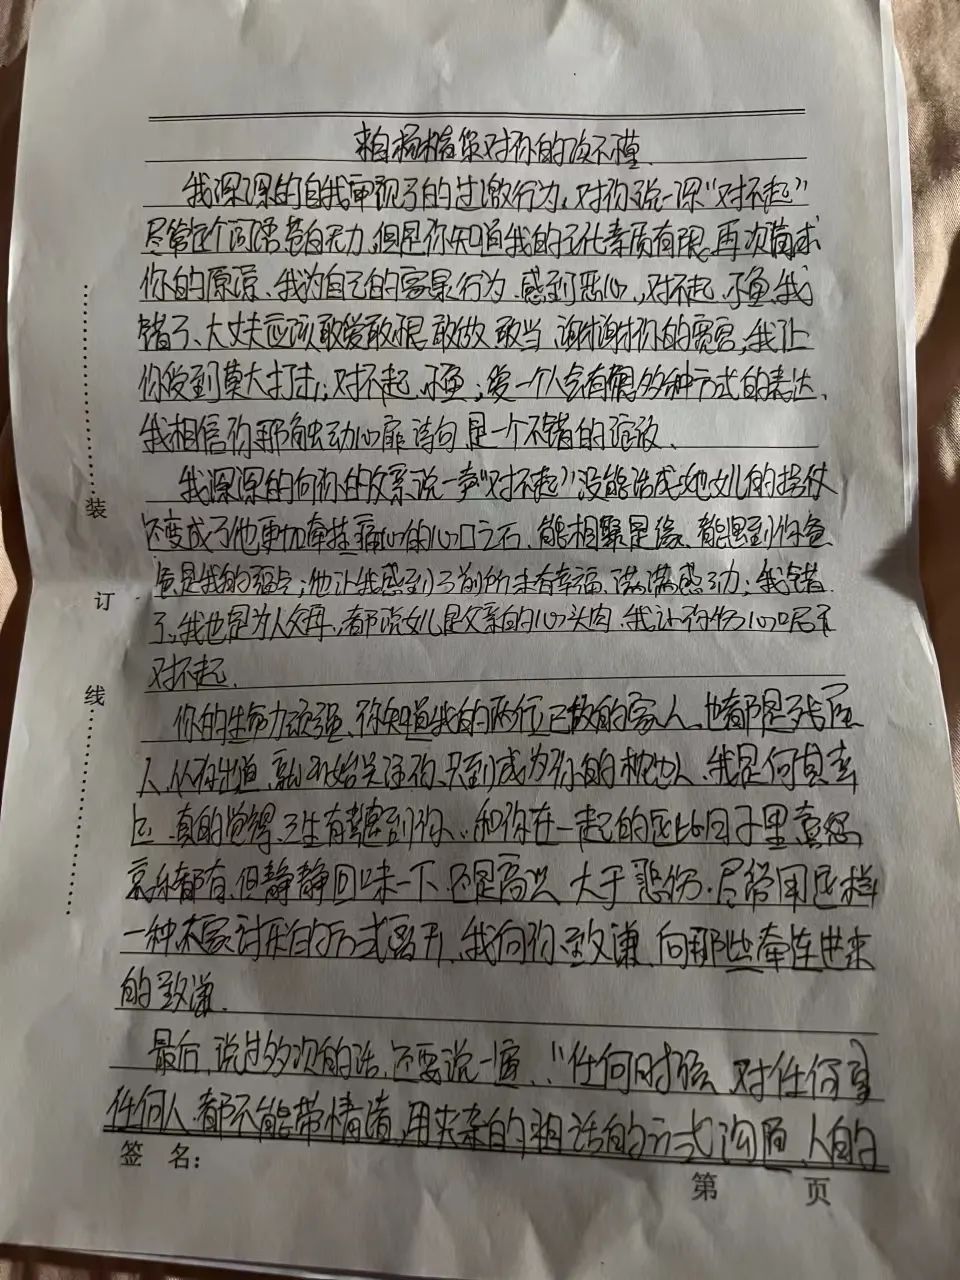 来自杨 对你的
我深深的自我审视了的过激行为，对你说一深“对不起”
尽管这个词语苍白无力，但是你知道我的文化素质有限。再次请求
你的原谅、我为自己的 行为、感到恶心，对不起，我
错了、大丈夫应该敢爱敢恨 敢做敢当，谢谢你的宽宏，我让
你受到莫大打击；对不起，爱一个人会有很多种方式的表达、
我相信你那触动心扉诗句，是一个不错的
我深深的向你的父亲说一声“对不起”没能活成她女儿的
还变成了他更加牵挂痛心的心口之石、能相聚是缘、能遇到你
是我的弱点；他让我感到了前所未有幸福、满满感动；我错
了，我也是为人父母，都说女儿是父亲的心头肉，我让你伤心
对不起、
你的生命力顽强、你知道我的两位已故的家人、也都是
人、从你出道，就开始关注你、只到成为你的枕边人，我是何其幸
运、真的觉得三生有 遇到你、和你在一起的 日子里喜怒
哀乐都有、但静静回味一下、还是高兴 大于悲伤。尽管用这样
一种不 讨 的方式离开，我向你致谦、向那些牵连进来
的致谦、
最后，说过多次的话，还要说一遍，“任何时候、对任何事
任何人、都不能带情 ，用夹杂的 话的方式沟通、人的
签 名：
第 页
装
订
线